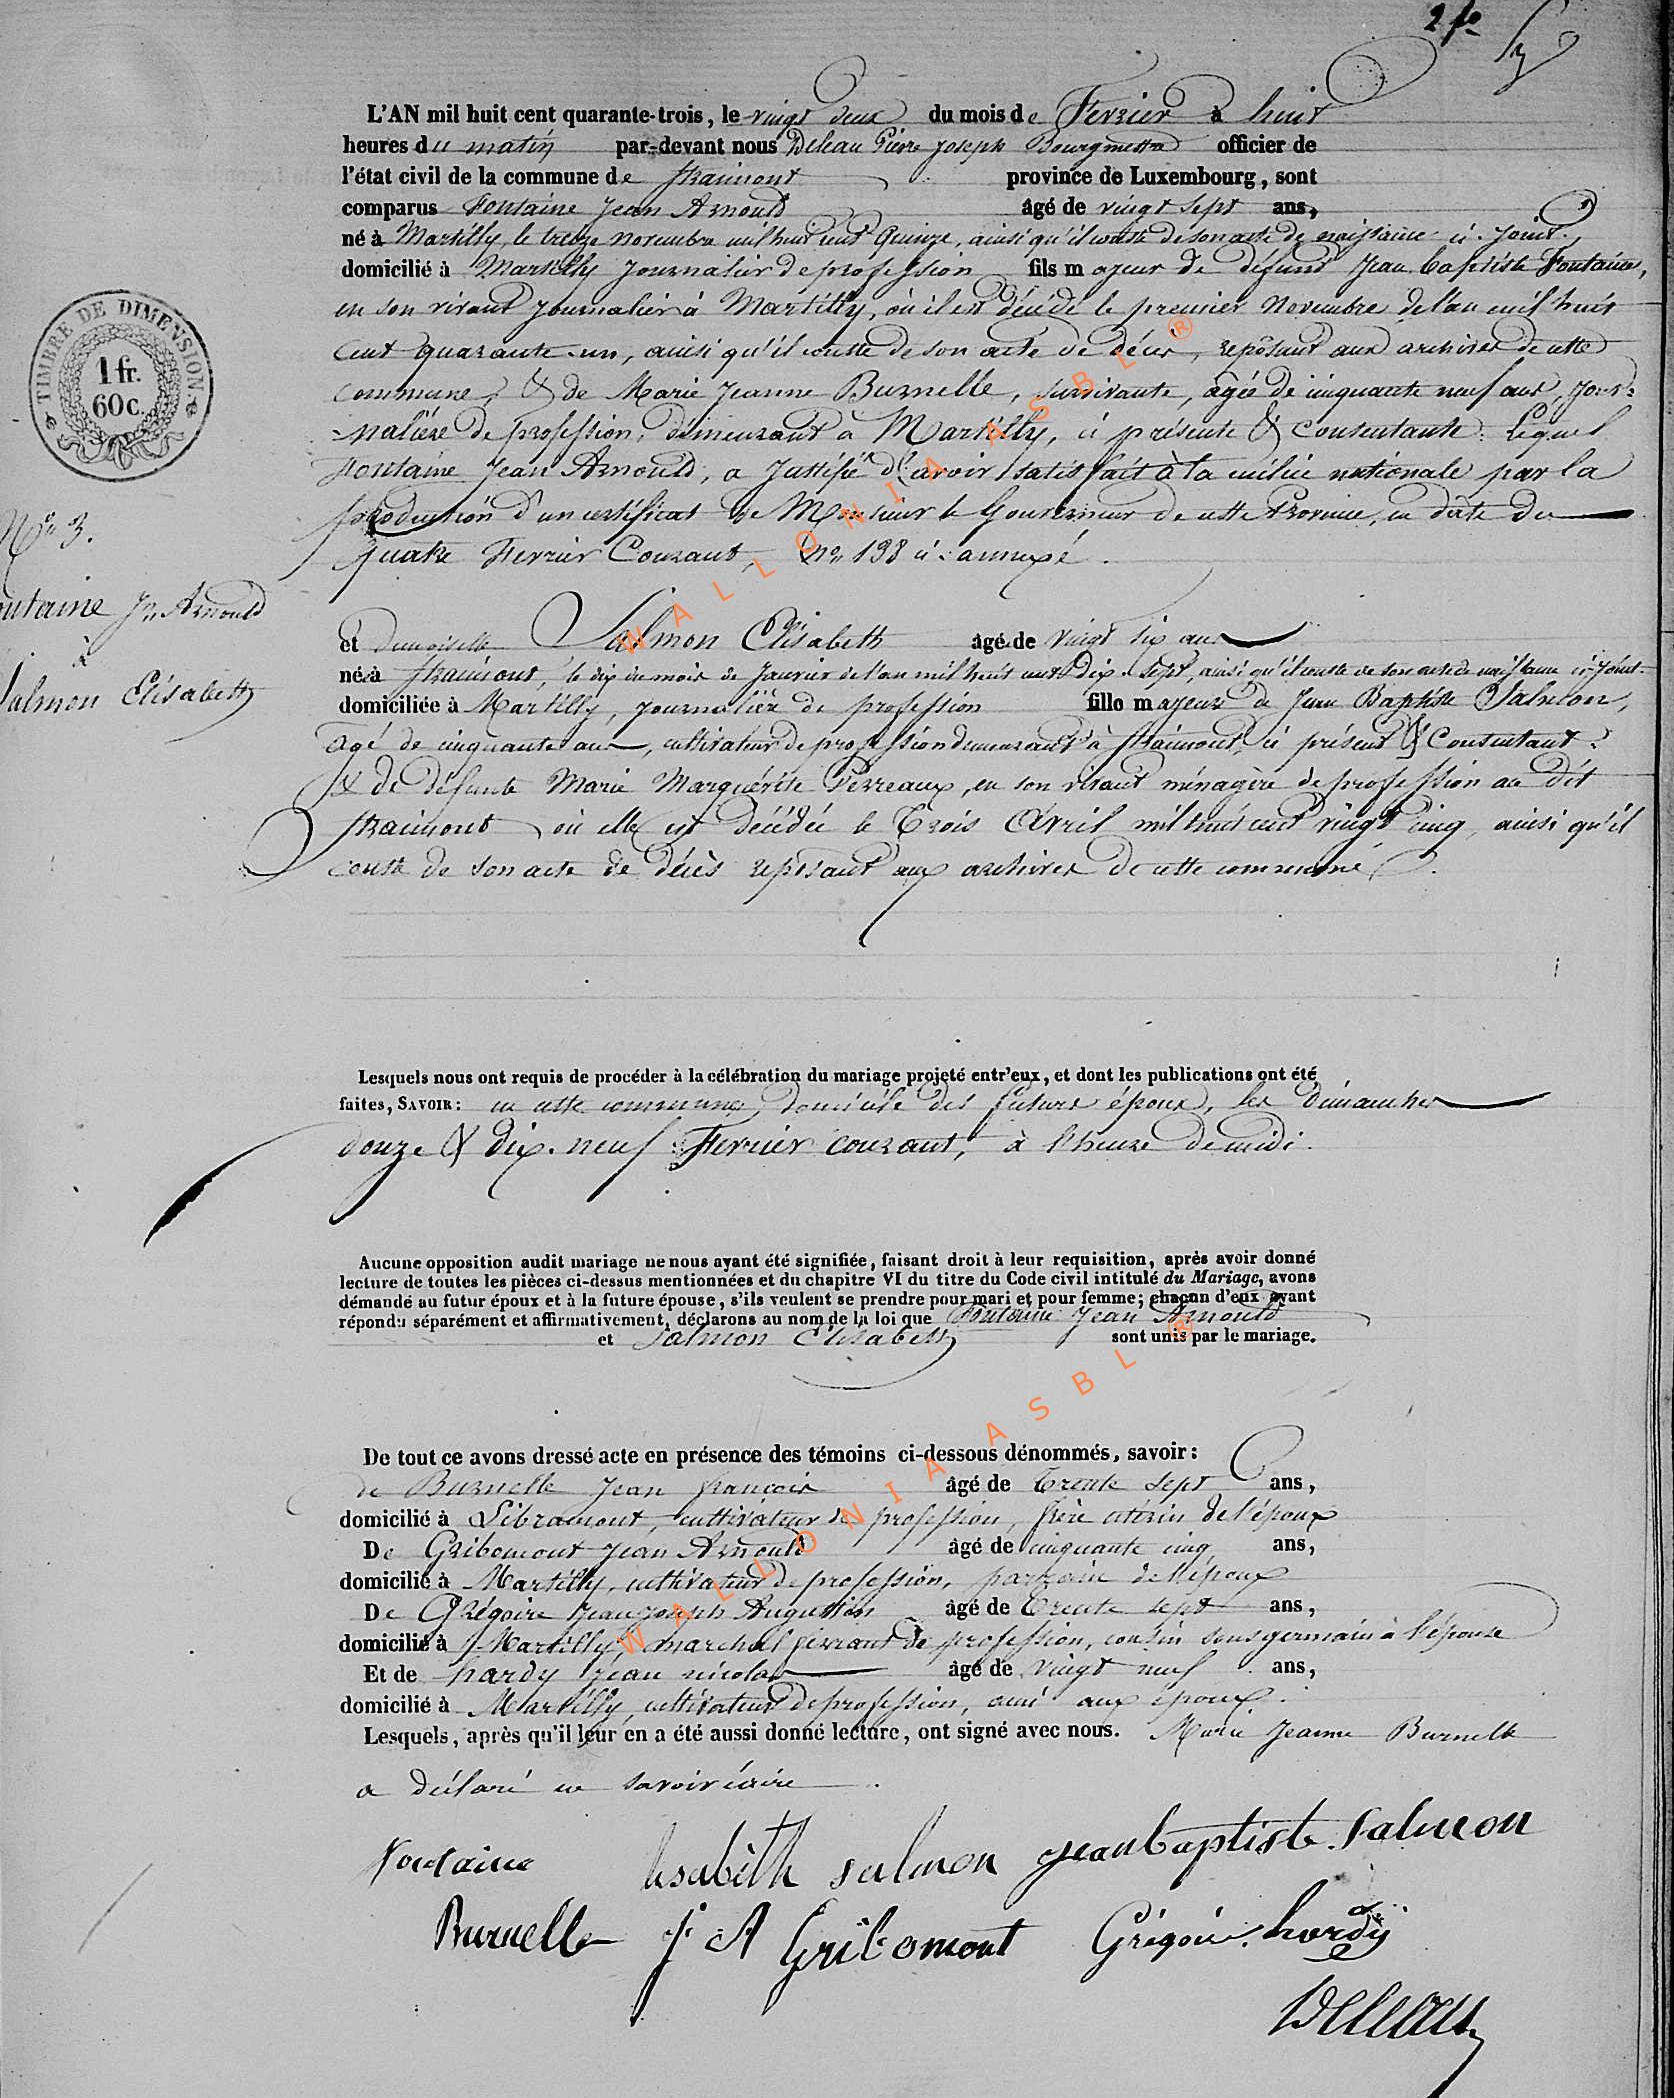 2 fo
L'AN mil huit cent quarante-trois, le vingt deux du mois de Fevrier à huit
heures du matin par-devant nous Deleau Pierre Joseph Bourgmestre officier de
l'état civil de la commune de Straimont province de Luxembourg, sont
comparus Fontaine Jean Arnould âgé de vingt sept ans,
né à Martilly, le treize novembre mil huit cent Quinze, ainsi qu'il conste de son acte de naissance ci-joint,
domicilié à Martilly Journalier de profession fils majeur de défunt Jean Baptiste Fontaine,
en son vivant Journalier à Martilly, où il est décédé le premier Novembre de l'an mil huit
Cent quarante-un, ainsi qu'il conste de son acte de décès, repôsant aux archives de cette
commune, & de Marie Jeanne Burnelle, survivante, agée de cinquante neuf ans, jour-
-nalière de profession, demeurant à Martilly, ci présente & consentante. Lequel
Fontaine Jean Arnould, a Justifié d'avoir satisfait à la milice nationale par la
production d'un certificat de Monsieur le Gouverneur de cette Province, en date du
quatre Fevrier Courant, No 198 ci-annexé.
No 3.
ontaine Jn Arnould
à
Salmon Elisabeth
et demoiselle Salmon Elisabeth âgé de vingt six ans
né à Straimont, le dix du mois de Janvier de l'an mil huit cent dix-sept, ainsi qu'il conste de son acte de naissance ci-joint.
domiciliée à Martilly, journalière de profession fille majeure de Jean Baptiste Salmon,
agé de cinquante ans, cultivateur de profession demeurant à Straimont, ci présent & Consentant.
& de défunte Marie Marguérite Perreaux, en son vivant ménagère de profession au dit
Straimont où elle est décédée le Trois Avril mil huit cent vingt cinq, ainsi qu'il
conste de son acte de décès reposant aux archives de cette commune.
Lesquels nous ont requis de procéder à la célébration du mariage projeté entr'eux, et dont les publications ont été
faites, SAVOIR: en cette commune, domicile des futurs époux, les dimanches
douze & dix-neuf Fevrier courant, à l'heure de midi.
Aucune opposition audit mariage ne nous ayant été signifiée, faisant droit à leur requisition, après avoir donné
lecture de toutes les pièces ci-dessus mentionnées et du chapitre VI du titre du Code civil intitulé du Mariage, avons
démandé au futur époux et à la future épouse, s'ils veulent se prendre pour mari et pour femme; chacun d'eux ayant
répondu séparément et affirmativement, déclarons au nom de la loi que Fontaine Jean Arnould
et Salmon Elisabeth sont unis par le mariage.
De tout ce avons dressé acte en présence des témoins ci-dessous dénommés, savoir:
de Burnelle Jean françois âgé de Trente sept ans,
domicilié à Libramont, cultivateur de profession, frère utérin de l'époux
De Gribomont Jean Arnould âgé de cinquante cinq ans,
domicilié à Martilly, cultivateur de profession, parrain de l'époux
De Grégoire Jean joseph Augustin âgé de Trente sept ans,
domicilié à Martilly, marchal ferrant de profession, cousin sous germain à l'épouse
Et de hardy Jean nicolas âgé de vingt neuf ans,
domicilié à Martilly, cultivateur de profession, ami aux époux.
Lesquels, après qu'il leur en a été aussi donné lecture, ont signé avec nous. Marie Jeanne Burnelle
a déclaré ne savoir écrire.
Fontaine lisabéth salmon jean baptiste salmon
Burnelle J A Gribomont Grégoire hardy
Deleau
TIMBRE DE DIMENSION
1 fr.
60 c.
WALLONIA ASBL ®
WALLONIA ASBL ®